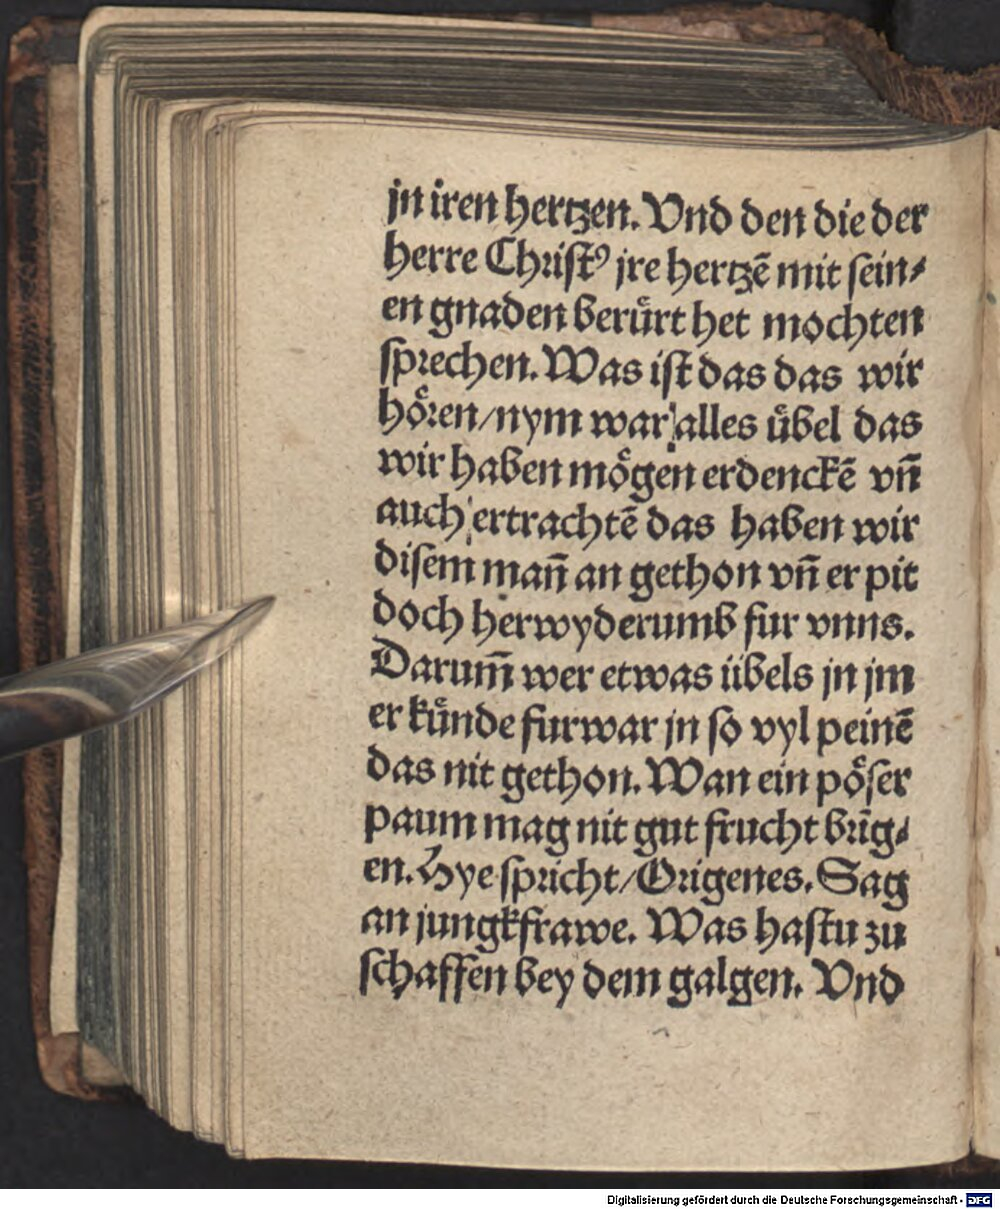 jn iren hertzen. Vnd den die der
herre Christꝰ jre hertzẽ mit sein⸗
en gnaden beruͤrt het mochten
sprechen. Was ist das das wir
hoͤren/nym war alles uͤbel das
wir haben moͤgen erdenckẽ vñ
auch ertrachtẽ das haben wir
disem mañ an gethon vñ er pit
doch herwyderumb fur vnns.
Darum̃ wer etwas übels jn jm
er kuͤnde furwar jn so vyl peinẽ
das nit gethon. Wan ein poͤser
paum mag nit gut frucht brĩg⸗
en. Hye spricht/Origenes. Sag
an jungkfrawe. Was hastu zu
schaffen bey dem galgen. Vnd
Digitalisierung gefördert durch die Deutsche Forschungsgemeinschaft - DFG